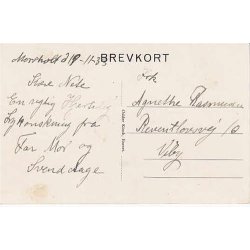 BREVKORT
Kære Nete
En rigtig Hjertelig
Lykønskning fra
Far Mor og
Svend Aage
Frk
Agnethe Rasmussen
Reventlowsvej
Viby